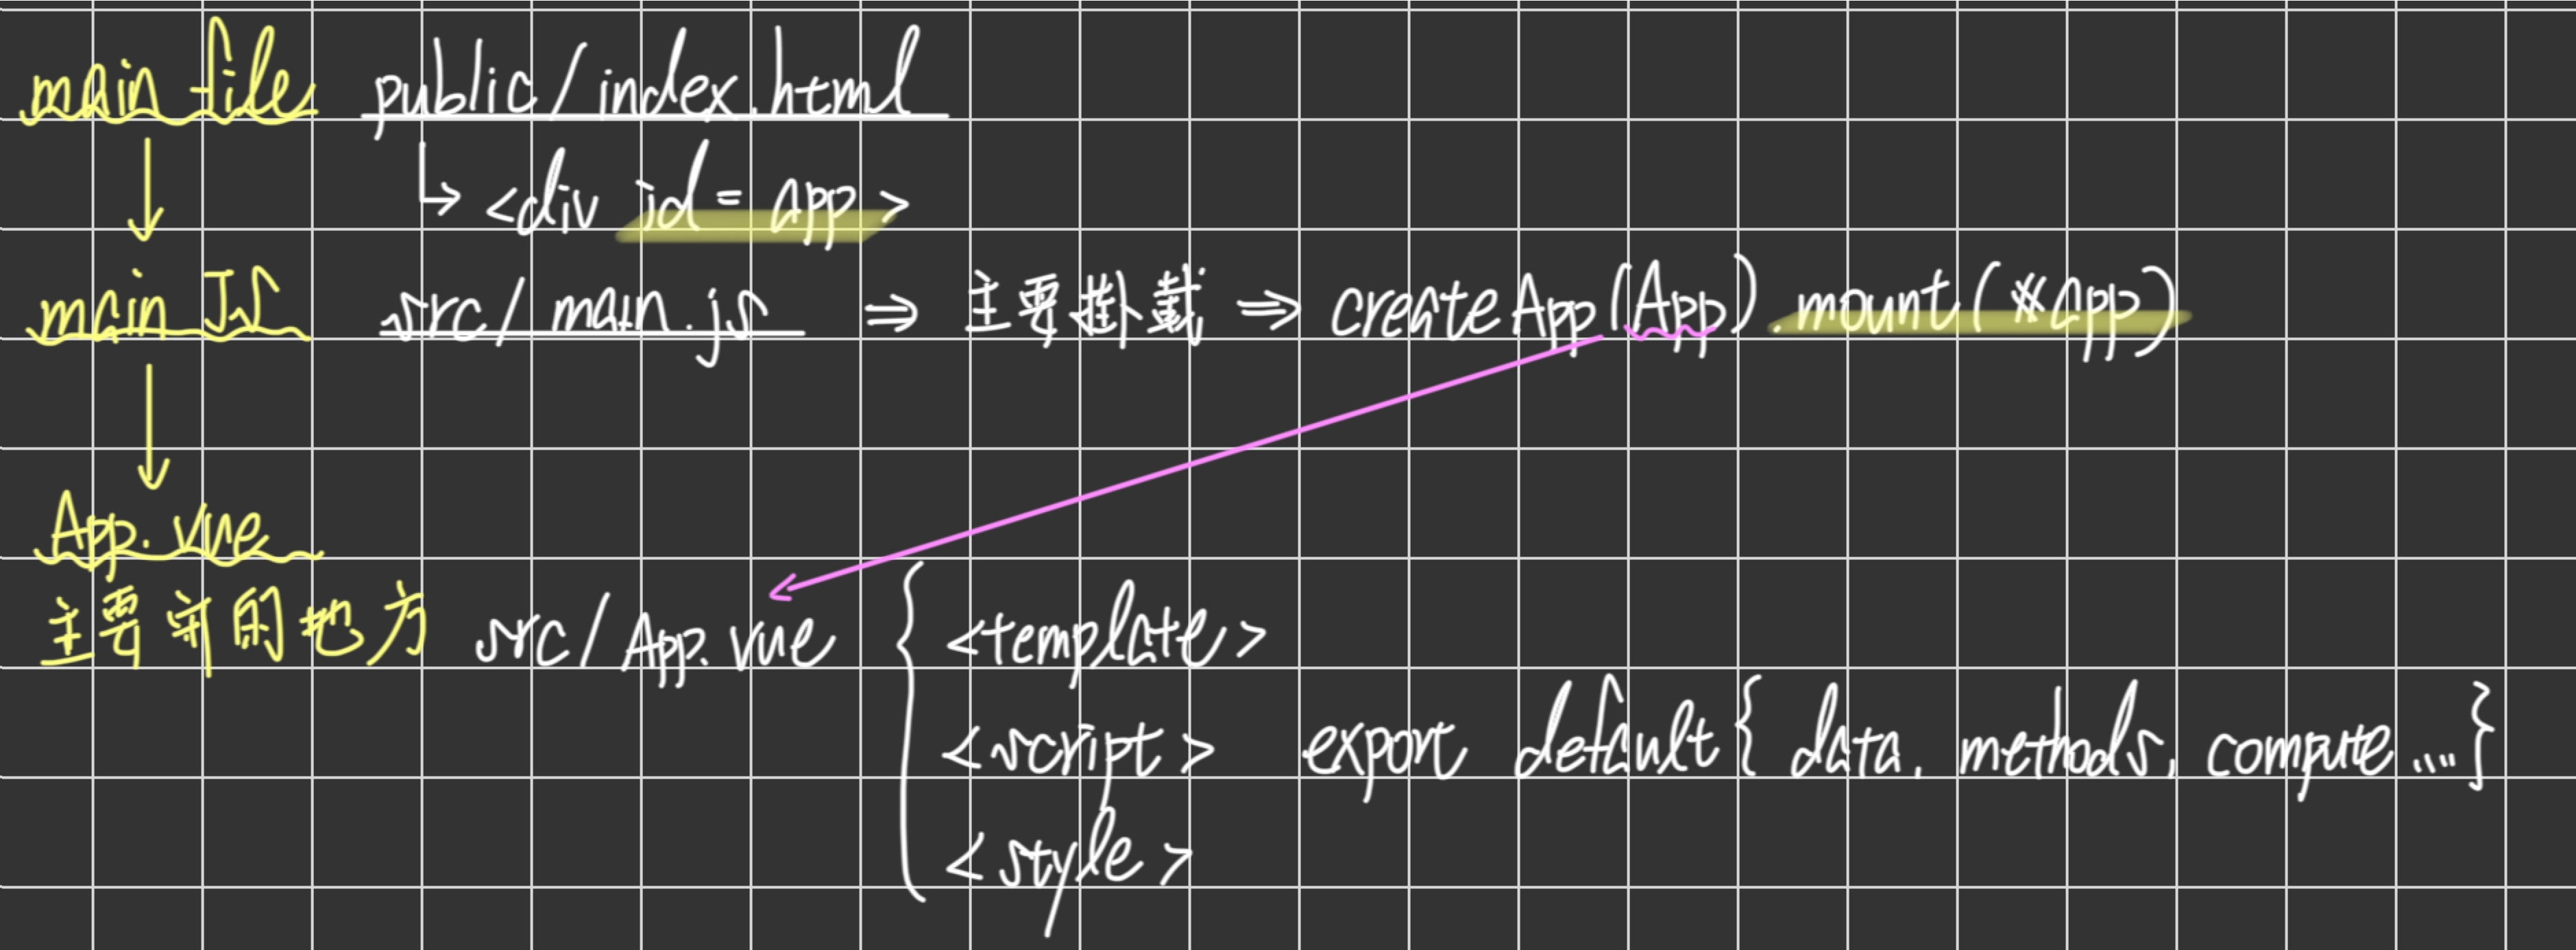 main file public/index.html
<div id=app>
main JS src/main.js ⇒ 主要掛載 ⇒ createApp(App).mount(#app)
App.vue
主要寫的地方 src/App.vue { <template>
<script> export default{ data, methods, compute....}
<style>